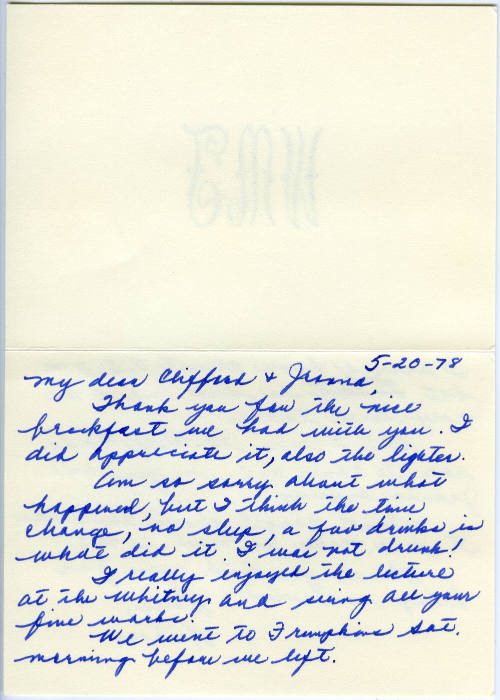 5-20-78
My dear Clifford &
Thank you for the nice
breakfast we had with you. I
did appreciate it, also the lighter.
Am so sorry about what
happened, but I think the time
change, no sleep, a few drinks is
what did it. I was not drunk!
I really enjoyed the lecture
at the Whitney and seeing all your
fine works.
We went to Frumpkins Sat.
morning before we left.